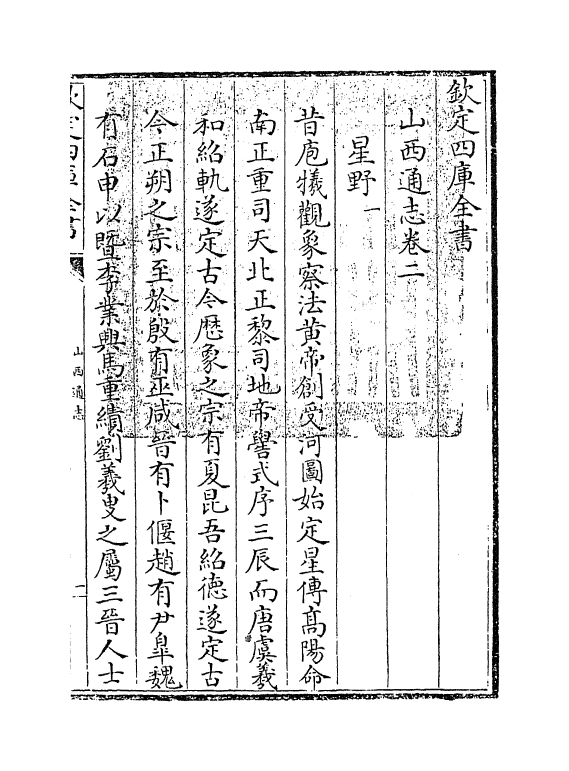 欽定四庫全書
山西通志卷二
星野一
昔庖犧觀象察法黄帝創受河圖始定星傳髙陽命
南正重司天北正黎司地帝嚳式序三辰而唐虞羲
和紹軌遂定古今厯象之宗有夏昆吾紹德遂定古
今正朔之宗至於殷有巫咸晉有卜偃趙有尹臯魏
有石申以暨李業興馬重績劉羲叟之屬三晉人士
欽定四庫全書
山西通志